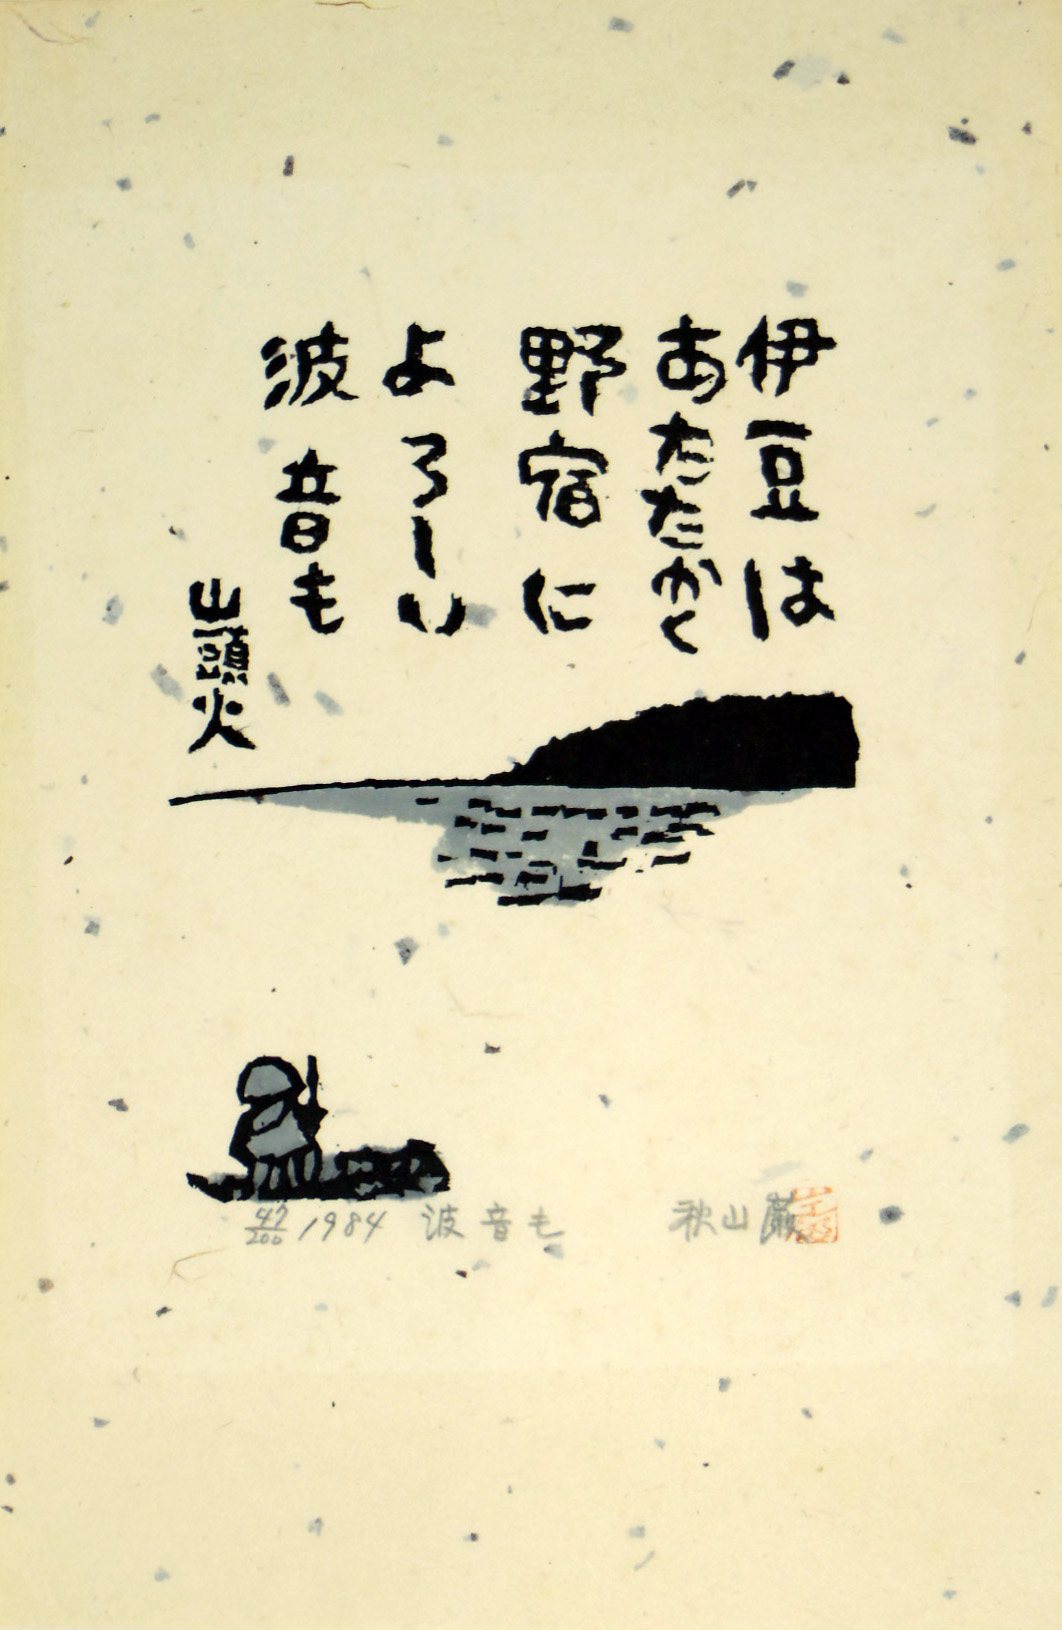 伊豆は
あたたかく
野宿に
よろしい
波音も
山頭火
47/200 1984 波音も 秋山巌